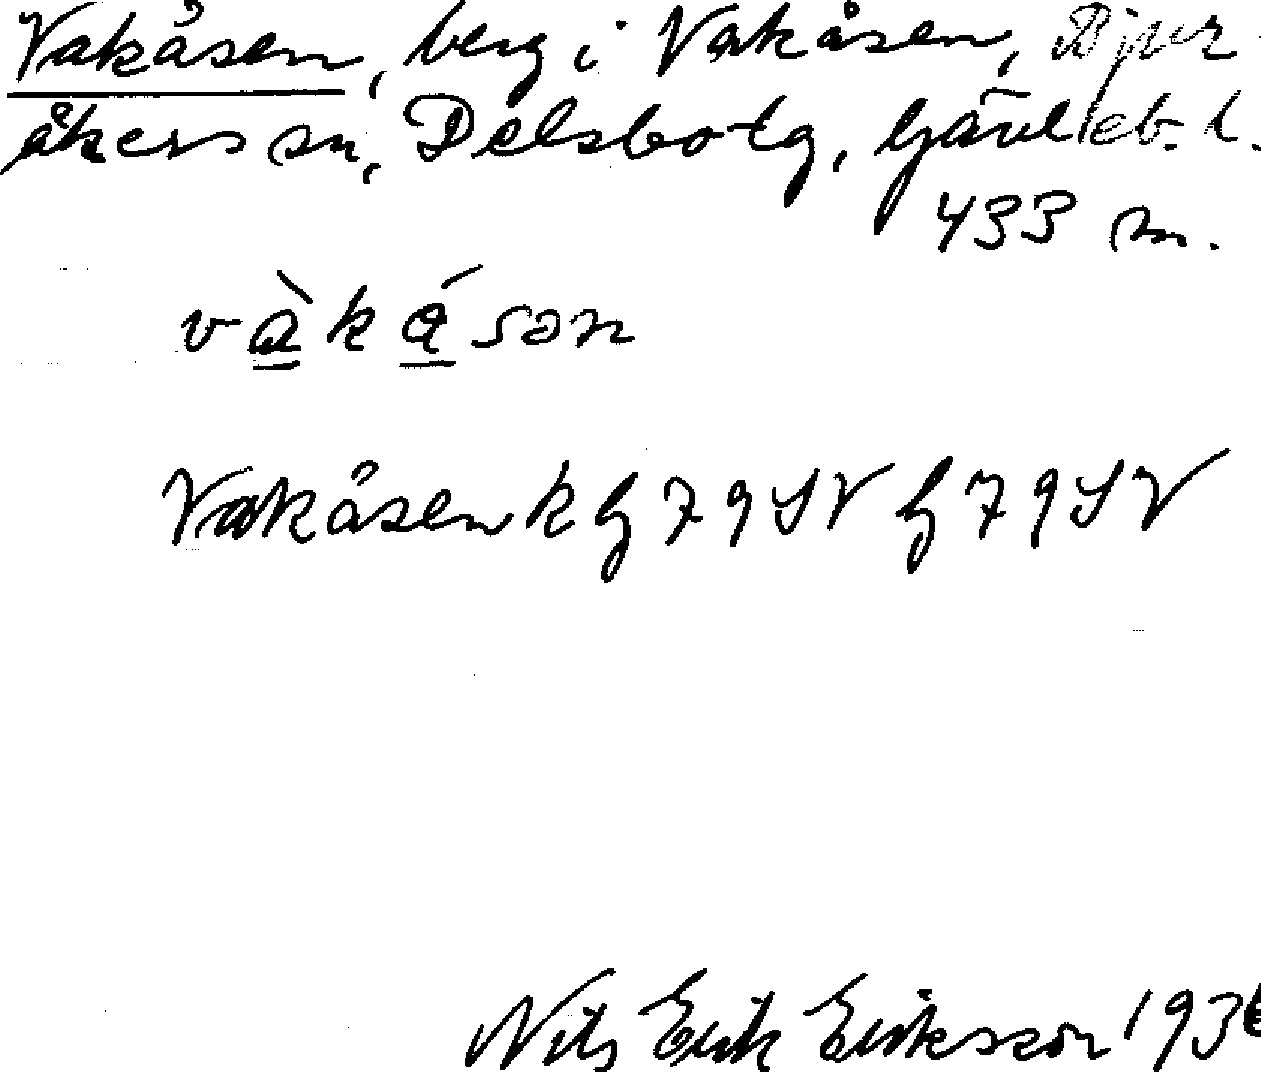 Vakåsen, berg i Vakåsen, Bjur
åkers sn, Delsbo tg, Gävleb. l.
433 m.
vàkásən
Vakåsen k G 79 SV G 79 SV
Nils Erik Eriksson 193